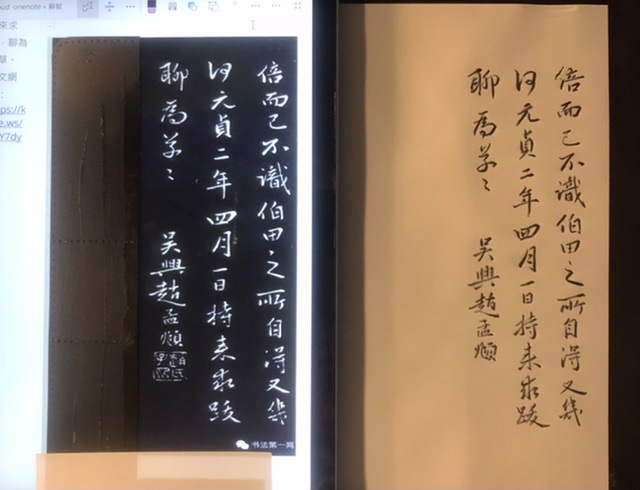 oud onenote
來求
聊為
文網
ps://k
e.ws/
Y7dy
倍而已不識伯田之所自得又幾
何元貞二年四月一日持来求跋
聊為草〻
吴興趙孟頫
书法第一网
倍而已不識伯田之所自得又幾
何元貞二年四月一日持来求跋
聊為草〻
吴興趙孟頫